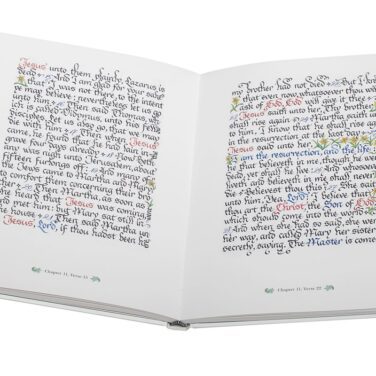 Jesus unto them plainly, Lazarus is
dead And I am glad for your sake
I was not there, to the intent
ye may believe; nevertheless let us
unto him Then said
which is called Didymus, unto
disciples, Let us also go
came, he found that he had
grave four days already
was nigh unto Jerusalem, about
fifteen furlongs off: And many of
comfort them concerning their
Then Martha, as soon as
Jesus was coming
met him: but Mary sat still in
Then said Martha
Jesus, Lord, if thou hadst been
Chapter 11, Verse 15
my brother had not died But I
that even now, whatsoever thou
ask of God, God will give it thee
Jesus saith unto her, Thy brother
shall rise again Martha saith
unto him, I know that he shall rise
in the resurrection at the last day
Jesus said unto her,
I am the resurrection, and the life
that believeth in me, though he were
yet shall he live And whosoever
liveth and believeth in me shall never
die Believest thou this? She saith
unto him, Yea, Lord: I believe that
thou art the Christ, the Son of God,
which should come into the world
And when she had so said, she went
her way, and called Mary her sister
secretly, saying, The Master is come
Chapter 11, Verse 22